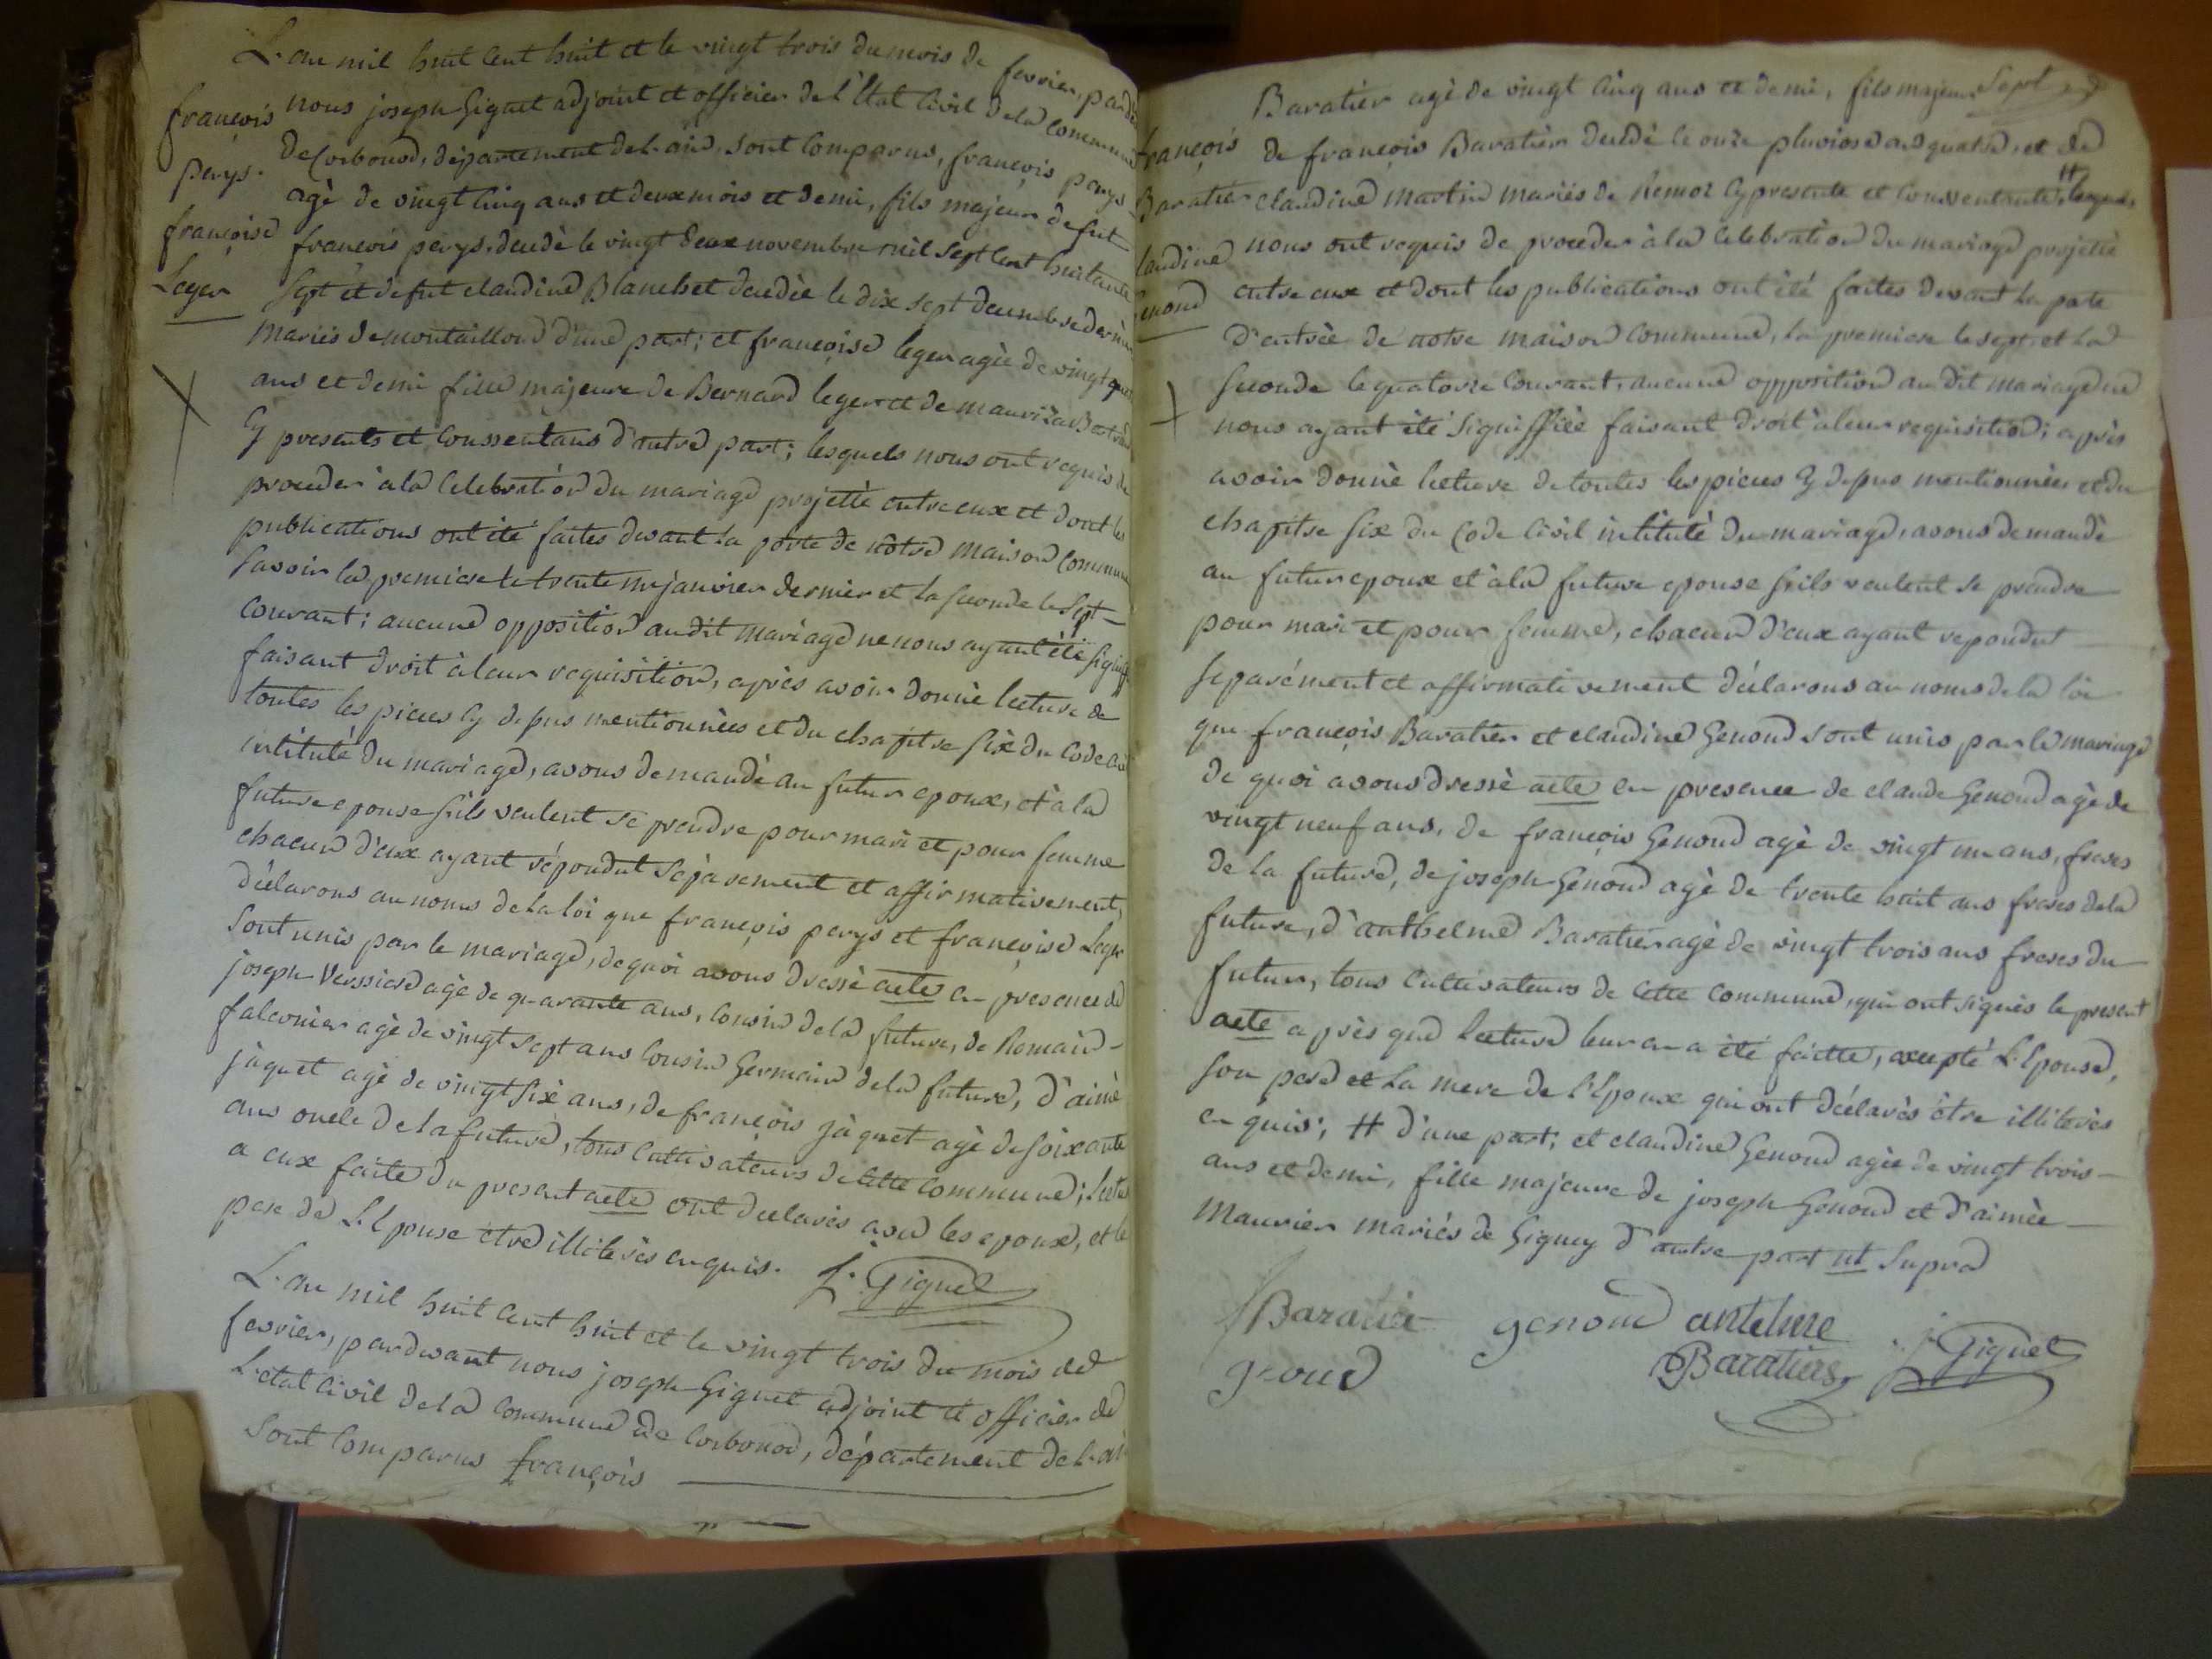 L'an mil huit cent huit et le vingt trois du mois de fevrier, pardt
nous joseph Giguet adjoint et officier de l'Etat Civil dela commune
de Corbonod, département de l'ain, sont Comparus, françois perys
agè de vingt cinq ans et deux mois et demi, fils majeur de fut
françois perys, decedè le vingt deux novembre mil sept cent huitante
sept et de fut claudine Blanchet decedèe le dix sept decembre dernier
mariés de montaillond d'une part; et françoise leger agèe de vingt
ans et demi fille majeure de Bernard leger et de mauriza
Cy presents et Conssentans d'autre part; lesquels nous ont requis de
proceder à la Celebration du mariage projettè entre eux et dont les
publications ont étè faites devant la porte de nôtre maison Commune
savoir la premiere le trente un janvier dernier et la seconde le sept
Courant; aucune opposition audit mariage ne nous ayant étè signiff
faisant droit à leur requisition, après avoir donnè lecture de
toutes les pieces Cy dessus mentionnèes et du chapitre six du Code civ
intitulé du mariage, avons demandè au futur epoux, et à la
future epouse s'ils veulent se prendre pour mari et pour femme
chacun d'eux ayant répondut séparement et affirmativement,
déclarons au noms de la loi que françois perys et françoise Leger
sont unis par le mariage, de quoi avons dressè acte en presence de
joseph Verssier agè de quarante ans, Cousin de la future, de Romain
falconier agè de vingt sept ans Cousin Germain dela future, d'aimè
jàquet agè de vingt six ans, de françois jàquet agè de soixante
ans oncle de la future, tous Cultivateurs de Cette commune; lectu
a eux faite du present acte ont declarés avec les epoux, et le
pere de L'Epouse être illiterés enquis. J. Giguet
françois
perys.
françoise
Leger
L'an mil huit cent huit et le vingt trois du mois de
fevrier, pardevant nous joseph Giguet adjoint et officier de
L'etat Civil dela commune de Corbonod, département de l'ain
sont Comparus françois
Baratier agè de vingt cinq ans et demi, fils majeur
de françois Baratier decédè le onze pluviose an quatre, et de
claudine martin mariés de Remoz Cy presente et Conssentante, # lesquels
nous ont requis de proceder à la Celebration du mariage projettè
entre eux et dont les publications ont étè faites devant la porte
d'entrèe de notre maison Commune, la premiere le sept, et la
seconde le quatorze Courant, aucune opposition au dit mariage ne
nous ayant étè signiffièe faisant droit à leur requisition; après
avoir donnè lecture de toutes les pieces Cy dessus mentionnèes et du
chapitre six du Code Civil intitulè du mariage, avons demandè
au futur epoux et à la future epouse s'ils veulent se prendre
pour mari et pour femme, chacun d'eux ayant repondut
separément et affirmativement déclarons au noms de la loi
que françois Baratier et claudine Genond sont unis par le mariage
de quoi avons dressè acte en presence de claude Genond agè de
vingt neuf ans, de françois Genond agè de vingt un ans, freres
de la future, de joseph Genond agè de trente huit ans freres de la
future, d'anthelme Baratier agè de vingt trois ans freres du
futur, tous Cultivateurs de Cette commune, qui ont signès le present
acte après que lecture leur en a étè faitte, excepté L'Epouse,
son pere et la mere de l'Epoux qui ont déclarès être illiterès
enquis; # d'une part; et claudine Genond agèe de vingt trois
ans et demi, fille majeure de joseph Genond et d'aimèe
maurier mariés de Gignez d'autre part ut supra
rançois
Baratier
laudine
enond
Baratie genond antelme
Baratier J. Giguet